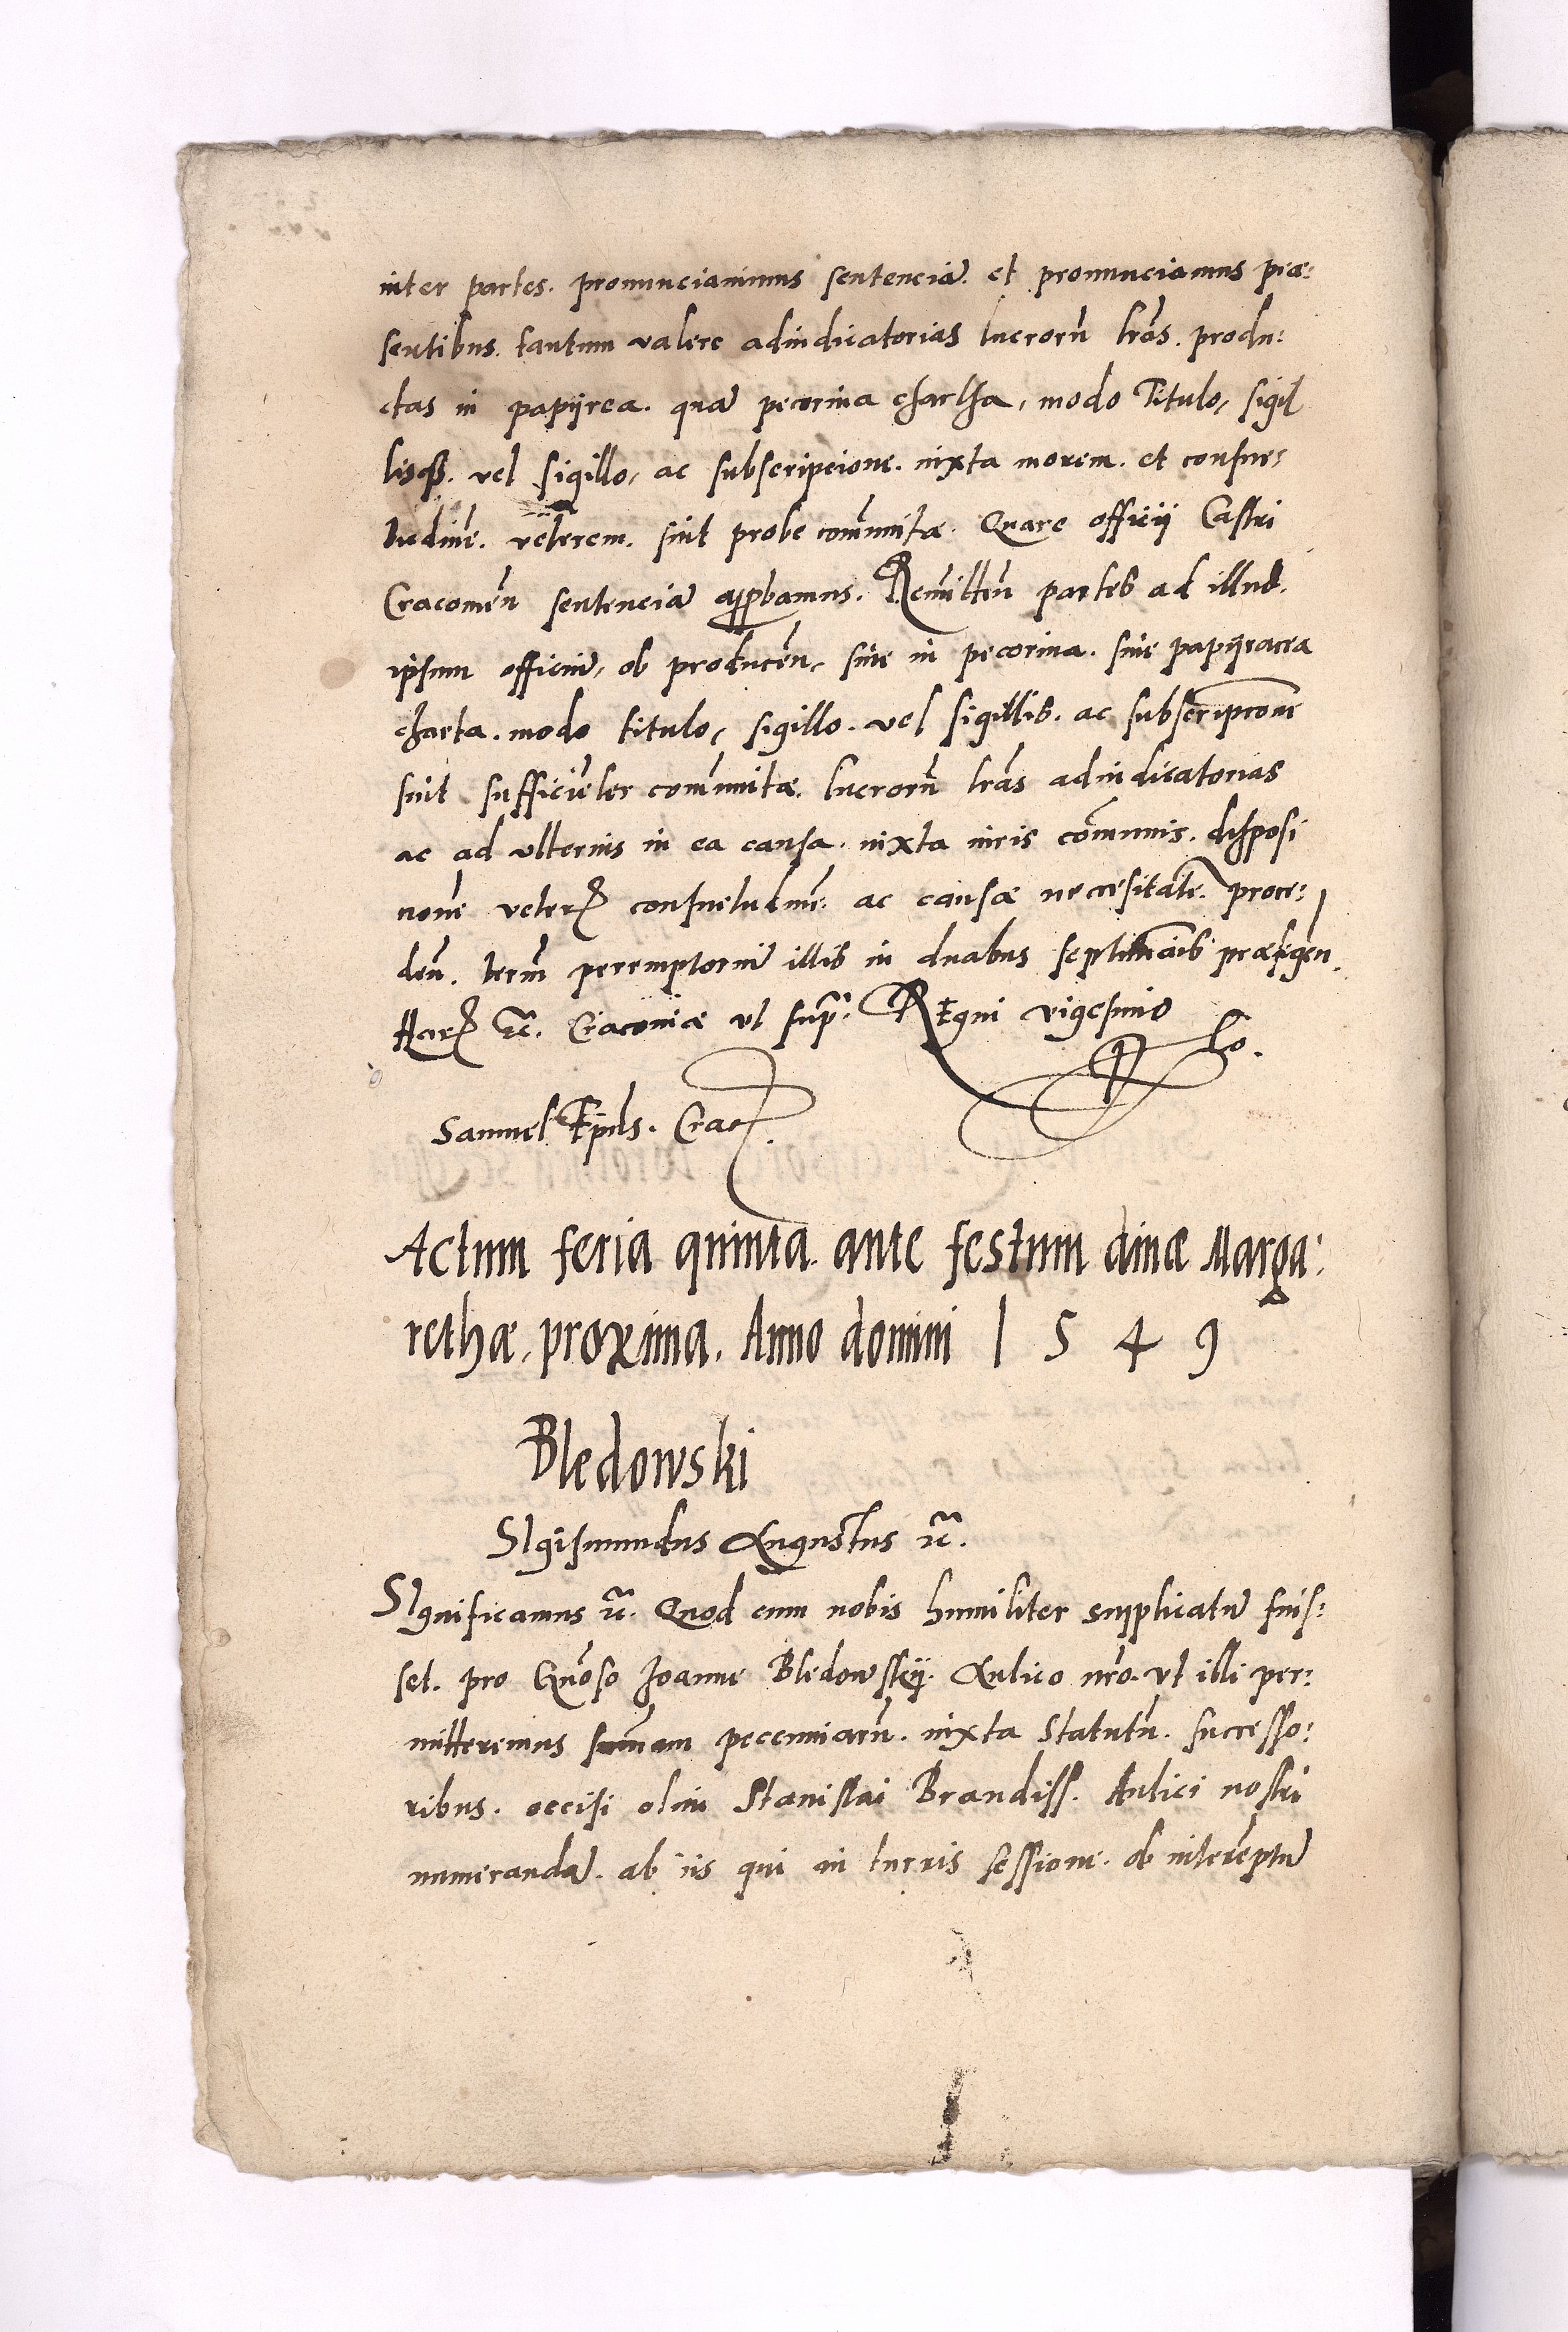 inter partes. pronunciauimus sentenciã. et pronunciamus præ:
sentibus. tantum valere adiudicatorias lucrorũ lr̃as. produ:
ctas in papÿrea. quã pecorina chartha, modo Titulo, sigil
lisqȝ. vel sigillo, ac subscripcione. iuxta morem. et consue:
tudinẽ. veterem. sint probe com̃unitæ. Quare officÿ Castri
Cracouieñ sentenciã app̃bamus. Remitteñ partes ad illud.
ipsum officiũ, ob produceñ, siue in pecorina. siue papÿracea
charta. modo titulo, sigillo. vel sigillis. ac subscripcõne
sint sufficiẽter com̃unitæ. lucrorũ lr̃as adiudicatorias
ac ad vlterius in ea causa. iuxta iuris com̃unis. disposi
cionẽ veterẽ consuetudinẽ. ac causæ neccesitatẽ. proce:
deñ. term̃ peremptoriũ illis in duabus septimãis præfigeñ.
Har ꝛc̃. Cracouiæ vt sup̃. REgni vigesimo
to.
Samuel Ep̃us. Crac.
Actum feria quinta. ante festum diuæ Marga:
rethæ. proxima. Anno domini 1 5 4 9
Bledowski
SIgismundus Augustus ꝛc̃.
SIgnificamus ꝛc̃. Quod cum nobis humiliter supplicatũ fuis:
set. pro Gñoso Joanne Bledowskÿ. Aulico nr̃o. vt illi per:
mitteremus sum̃am pecuniarũ. iuxta Statutũ. successo:
ribus. occisi olim Stanislai Brandiss. Aulici nostri
numerandã. ab iis qui in turris sessione. ob interẽptũ